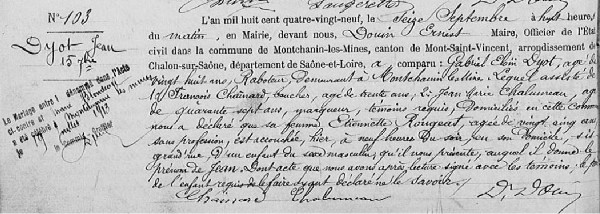 N° 103
Dyot Jean
15 7bre
L'an mil huit cent quatre-vingt-neuf, le Seize Septembre à huit heures
du matin, en Mairie, devant nous, Douin Ernest Maire, Officier de l'État
civil dans la commune de Montchanin-les-Mines, canton de Mont-Saint-Vincent, arrondissement de
Chalon-sur-Saône, département de Saône-et-Loire, a comparu : Gabriel Dyot, âgé de
vingt huit ans, Raboteur, Demeurant à Montchanin Lequel assisté de
1° François Chainard, boucher, âgé de trente ans, 2° Jean Marie Chalumeau, âgé
de quarante sept ans, marqueur, témoins requis, Domiciliés en cette Commune
nous a déclaré que sa femme Etiennette Rougeot, agée de vingt cinq ans
sans profession, est accouchée, hier, à neuf heures Du soir en son Domicile, sis
grand rue, D'un enfant du sexe masculin, qu'il nous présente, auquel il donne le
prénom de Jean. Dont acte que nous avons après lecture signé avec les témoins, le père
de l'enfant requis de le faire ayant déclaré ne le savoir.
Chainard Chalumeau Dr Douin
Le Mariage entre
ci contre et
a été célébré à
le